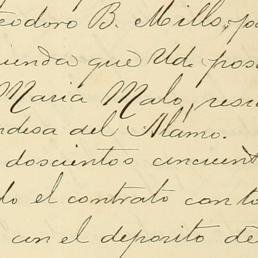 eodoro B. Mills, p
ienda que Ud. pos
Maria Malo, res
ndesa del Alamo.
doscientos cincuent
do el contrato con to
con el deposito de